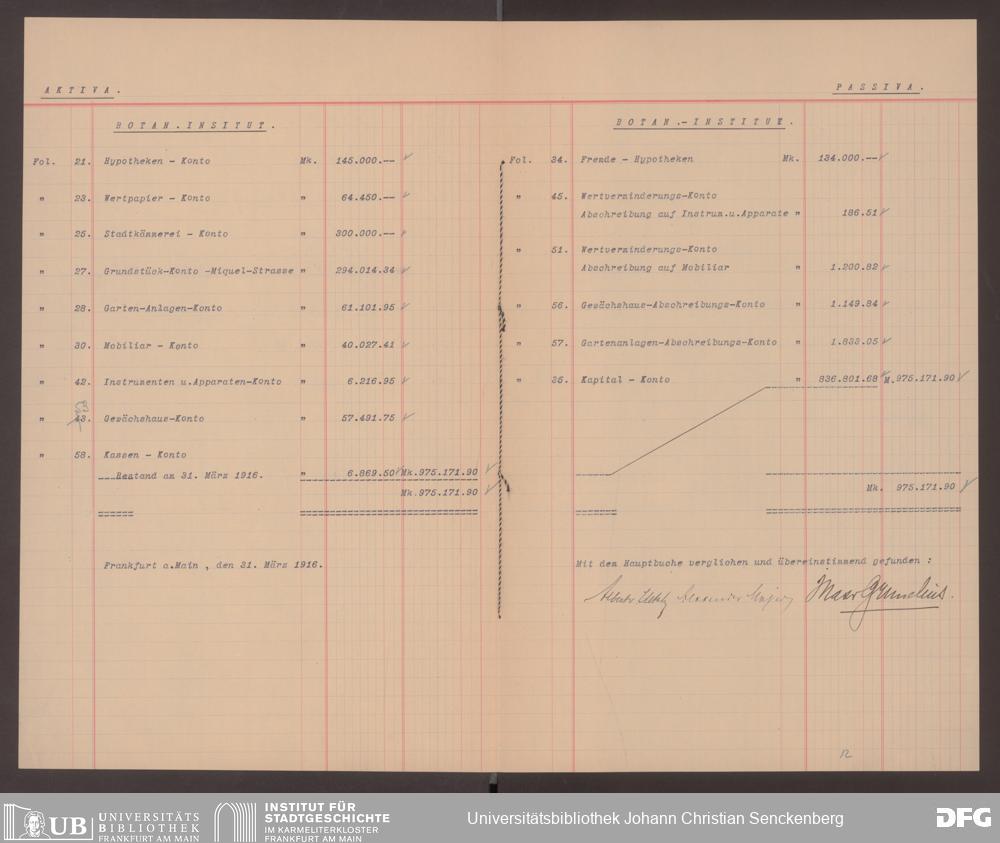 AKTIVA.
BOTAN.INSITUT.
Fol. 21. Hypotheken - Konto Mk. 145.000.--
" 23. Wertpapier - Konto " 64.450.--
" 25. Stadtkämmerei - Konto " 300.000.--
" 27. Grundstück-Konto -Miquel-Strasse " 294.014.34
" 28. Garten-Anlagen-Konto " 61.101.95
" 30. Mobiliar - Konto " 40.027.41
" 42. Instrumenten u.Apparaten-Konto " 6.216.95
" 43. Gewächshaus-Konto " 57.491.75
" 58. Kassen - Konto
Bestand am 31. März 1916. " 6.869.50 Mk.975.171.90
Mk.975.171.90
Frankfurt a.Main , den 31. März 1916.
PASSIVA.
BOTAN.-INSTITUT.
Fol. 34. Fremde - Hypotheken Mk. 134.000.--
" 45. Wertverminderungs-Konto
Abschreibung auf Instrum.u.Apparate " 186.51
" 51. Wertverminderungs-Konto
Abschreibung auf Mobiliar " 1.200.82
" 56. Gewächshaus-Abschreibungs-Konto " 1.149.84
" 57. Gartenanlagen-Abschreibungs-Konto " 1.833.05
" 35. Kapital - Konto " 836.801.68 M.975.171.90
Mk. 975.171.90
Mit dem Hauptbuche verglichen und übereinstimmend gefunden :
12
UB UNIVERSITÄTS
BIBLIOTHEK
FRANKFURT AM MAIN
INSTITUT FÜR
STADTGESCHICHTE
IM KARMELITERKLOSTER
FRANKFURT AM MAIN
Universitätsbibliothek Johann Christian Senckenberg
DFG